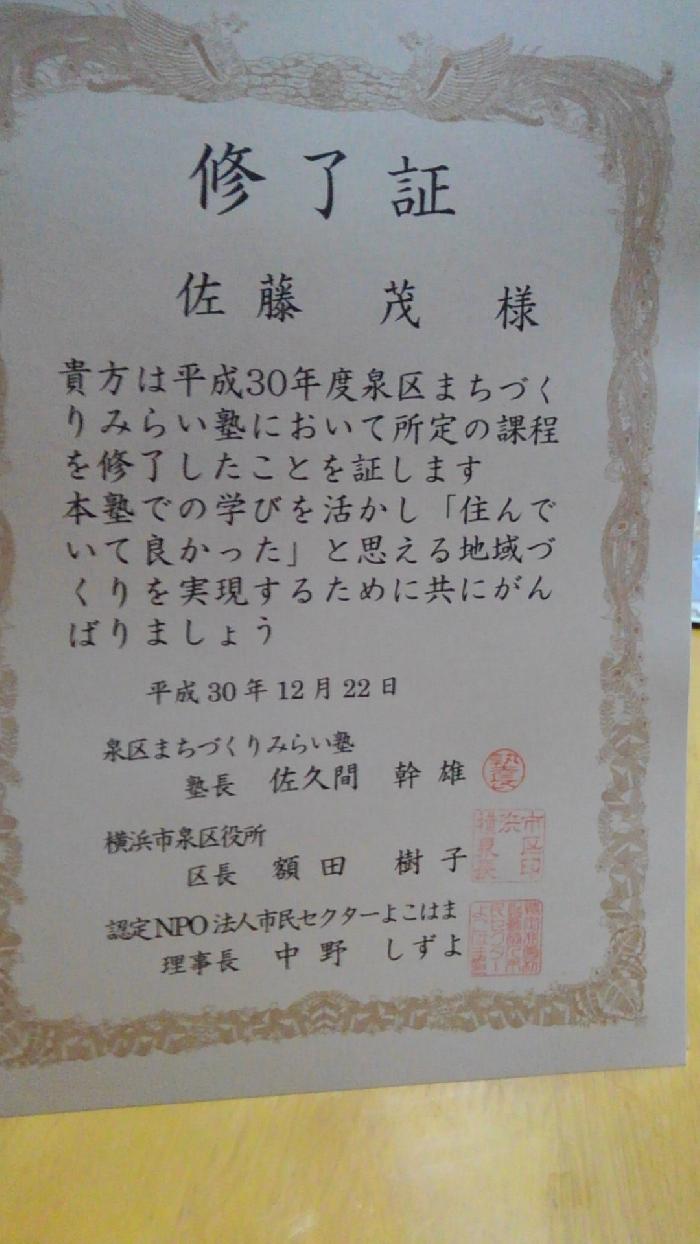 修了証
佐藤 茂 様
貴方は平成30年度泉区まちづく
りみらい塾において所定の課程
を修了したことを証します
本塾での学びを活かし「住んで
いて良かった」と思える地域づ
くりを実現するために共にがん
ばりましょう
平成30年12月22日
泉区まちづくりみらい塾
塾長 佐久間 幹雄
横浜市泉区役所
区長 額田 樹子
認定NPO法人市民セクターよこはま
理事長 中野 しずよ